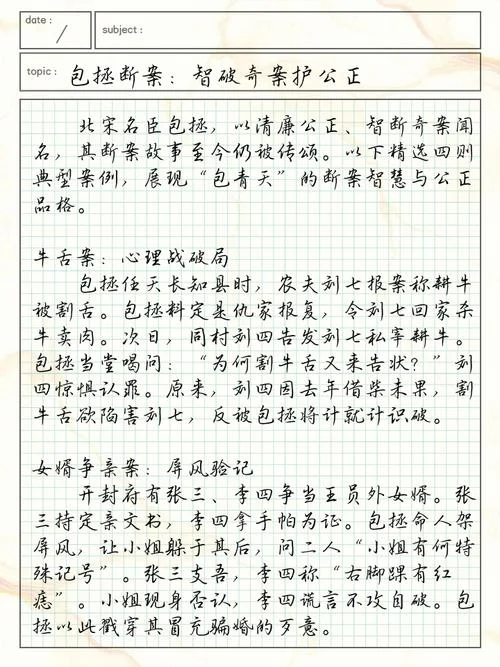 date :
subject :
topic : 包拯断案：智破奇案护公正
北宋名臣包拯，以清廉公正、智断奇案闻
名，其断案故事至今仍被传颂。以下精选四则
典型案例，展现“包青天”的断案智慧与公正
品格。
牛舌案：心理战破局
包拯任天长知县时，农夫刘七报案称耕牛
被割舌。包拯料定是仇家报复，令刘七回家杀
牛卖肉。次日，同村刘四告发刘七私宰耕牛。
包拯当堂喝问：“为何割牛舌又来告状？”刘
四惊惧认罪。原来，刘四因去年借柴未果，割
牛舌欲陷害刘七，反被包拯将计就计识破。
女婿争亲案：屏风验记
开封府有张三、李四争当王员外女婿。张
三持定亲文书，李四拿手帕为证。包拯命人架
屏风，让小姐躲于其后，问二人“小姐有何特
殊记号”。张三支吾，李四称“右脚踝有红
痣”。小姐现身否认，李四谎言不攻自破。包
拯以此戳穿其冒充骗婚的歹意。